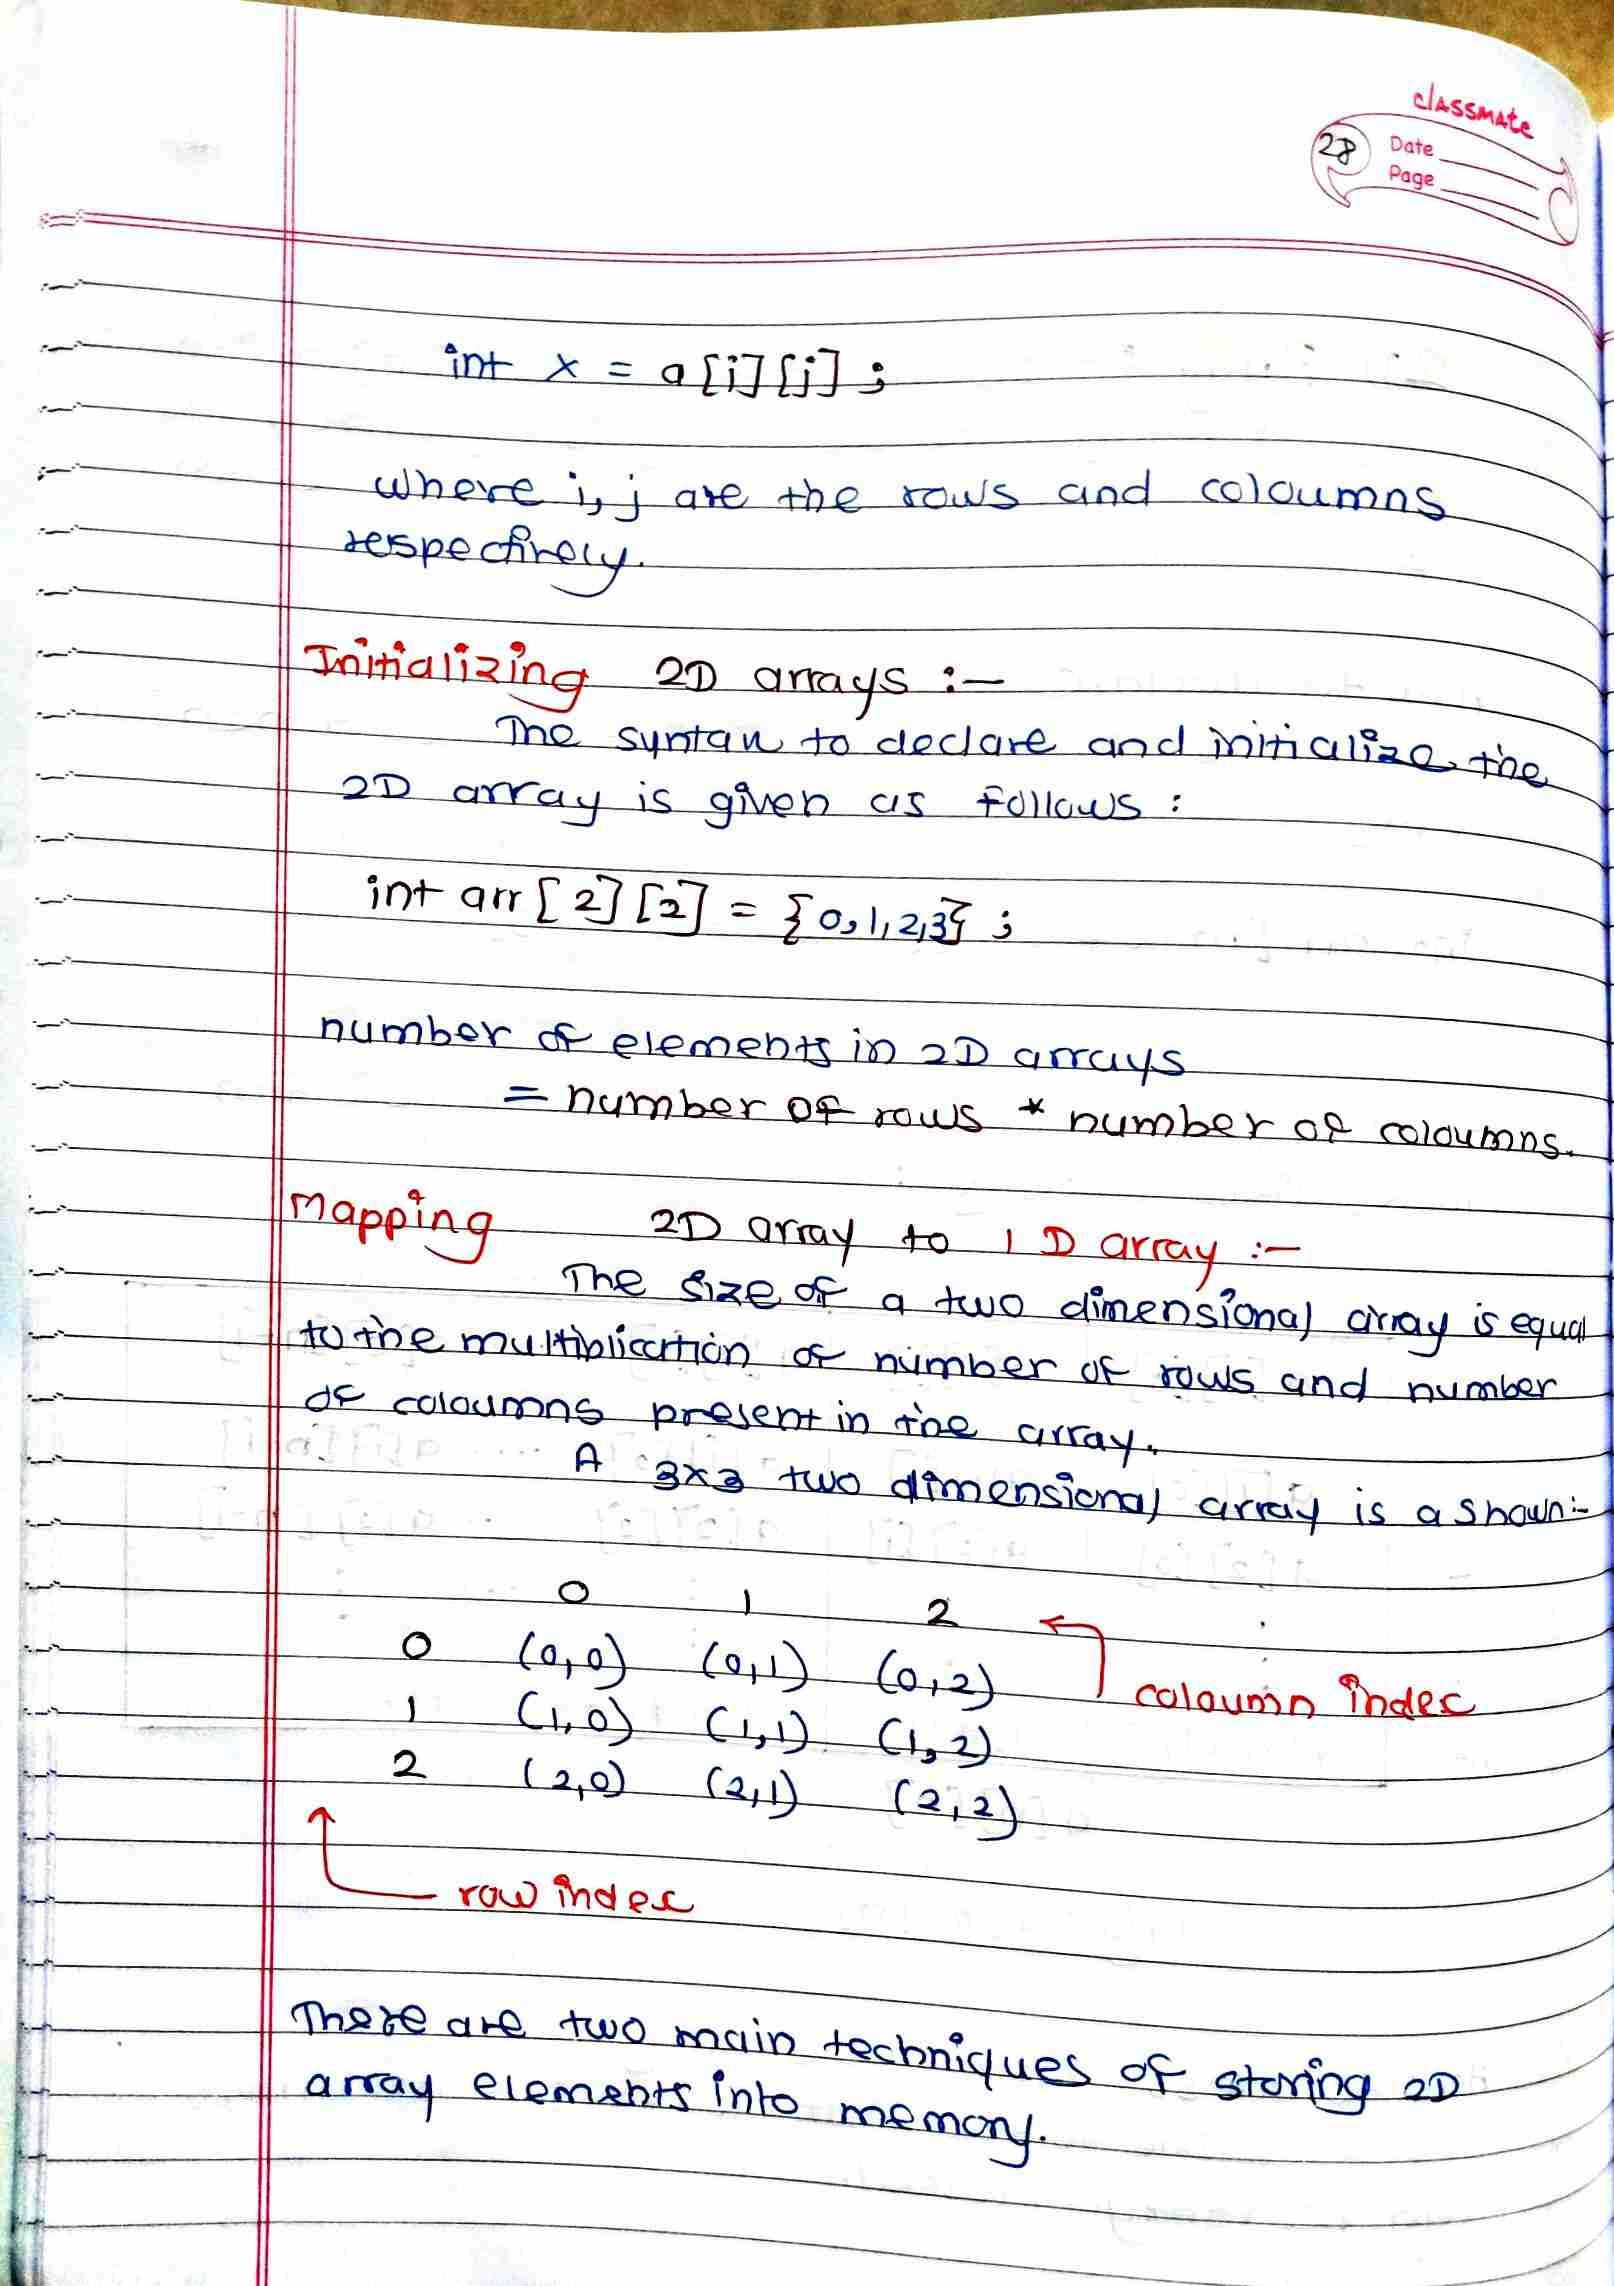 classmate
28
Date
Page
int x = a[i][j];
where i, j are the rows and coloumns
respectively.
Initializing 2D arrays :-
The syntax to declare and initialize the
2D array is given as follows :
int arr[2][2] = {0,1,2,3};
number of elements in 2D arrays
= number of rows * number of coloumns.
Mapping 2D array to 1 D array :-
The size of a two dimensional array is equal
to the multiplication of number of rows and number
of coloumns present in the array.
A 3x3 two dimensional array is a shown:-
0 1 2
0 (0,0) (0,1) (0,2)
coloumn index
1 (1,0) (1,1) (1,2)
2 (2,0) (2,1) (2,2)
row index
There are two main techniques of storing 2D
array elements into memory.